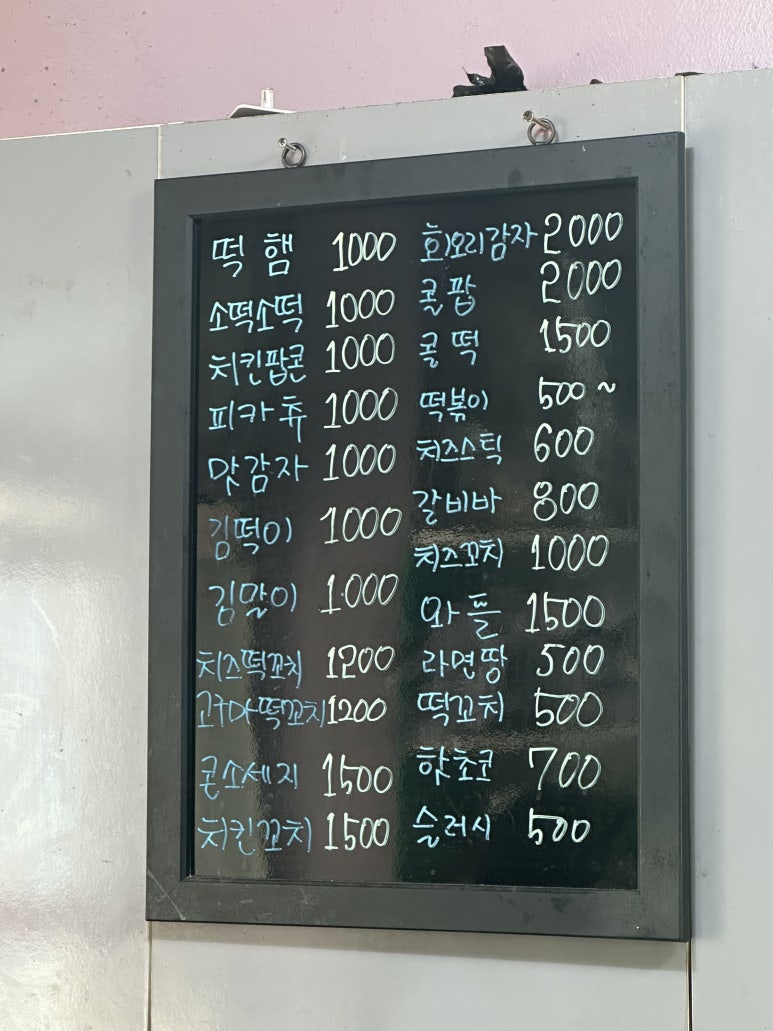 떡햄 1000
소떡소떡 1000
치킨팝콘 1000
피카츄 1000
맛감자 1000
김떡이 1000
김말이 1000
치즈떡꼬치 1200
고구마떡꼬치 1200
콘소세지 1500
치킨꼬치 1500
회오리감자 2000
콜팝 2000
콜떡 1500
떡볶이 500~
치즈스틱 600
갈비바 800
치즈꼬치 1000
와플 1500
라면땅 500
떡꼬치 500
핫초코 700
슬러시 500